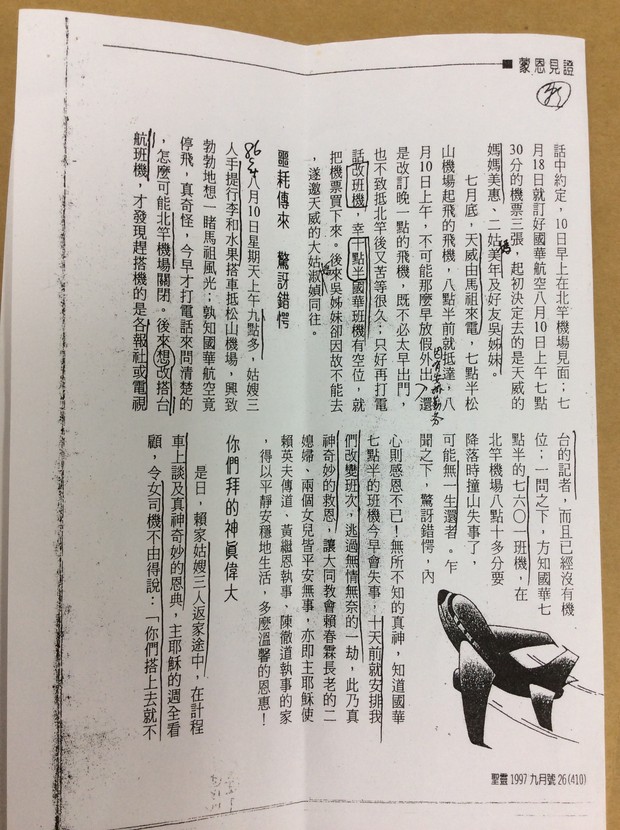 蒙恩見證
話中約定，10日早上在北竿機場見面；七
月18日就訂好國華航空八月10日上午七點
30分的機票三張，起初決定去的是天威的
媽媽美惠、二姑美年及好友吳姊妹。
七月底，天威由馬祖來電，七點半松
山機場起飛的飛機，八點半前就抵達，八
月10日上午，不可能那麼早放假外出，還
是改訂晚一點的飛機，既不必太早出門，
也不致抵北竿後又苦等很久；只好再打電
話改班機，幸十點半國華班機有空位，就
把機票買下來。後來吳姊妹卻因故不能去
，遂邀天威的大姑淑媜同往。
噩耗傳來 驚訝錯愕
86年八月10日星期天上午九點多，姑嫂三
人手提行李和水果搭車抵松山機場，興致
勃勃地想一睹馬祖風光；孰知國華航空竟
停飛，真奇怪，今早才打電話來問清楚的
，怎麼可能北竿機場關閉。後來想改搭台
航班機，才發現趕搭機的是各報社或電視
台的記者，而且已經沒有機
位；一問之下，方知國華七
點半的七六〇一班機，在
北竿機場八點十多分要
降落時撞山失事了，
可能無一生還者。乍
聞之下，驚訝錯愕，內
心則感恩不已！無所不知的真神，知道國華
七點半的班機今早會失事，十天前就安排我
們改變班次，逃過無情無奈的一劫，此乃真
神奇妙的救恩，讓大同教會賴春霖長老的二
媳婦、兩個女兒皆平安無事，亦即主耶穌使
賴英夫傳道、黃繼恩執事、陳徹道執事的家
，得以平靜安穩地生活，多麼溫馨的恩惠！
你們拜的神真偉大
是日，賴家姑嫂三人返家途中，在計程
車上談及真神奇妙的恩典，主耶穌的週全看
顧，令女司機不由得說：「你們搭上去就不
聖靈 1997 九月號 26(410)